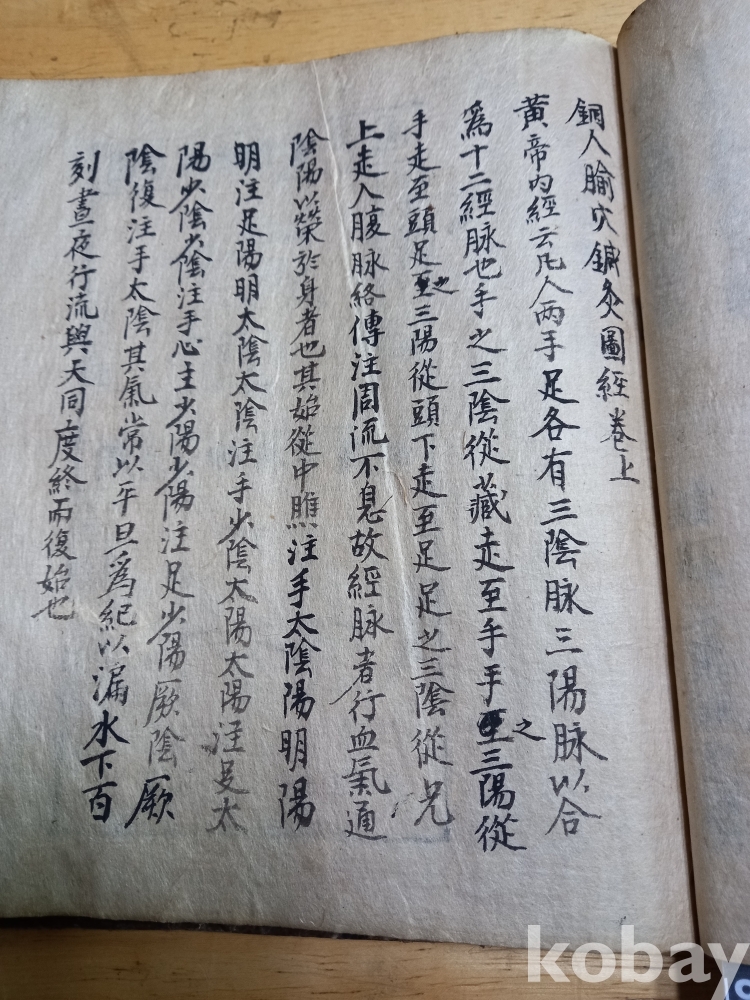 銅人腧穴鍼灸圖經卷上
黃帝內經云凡人兩手足各有三陰脉三陽脉以合
爲十二經脉也手之三陰從藏走至手手之三陽從
手走至頭足之三陽從頭下走至足足之三陰從足
上走入腹脉絡傳注周流不息故經脉者行血氣通
陰陽以榮於身者也其始從中膲注手太陰陽明陽
明注足陽明太陰太陰注手少陰太陽太陽注足太
陽少陰少陰注手心主少陽少陽注足少陽厥陰厥
陰復注手太陰其氣常以平旦爲紀以漏水下百
刻晝夜行流與天同度終而復始也
kobay